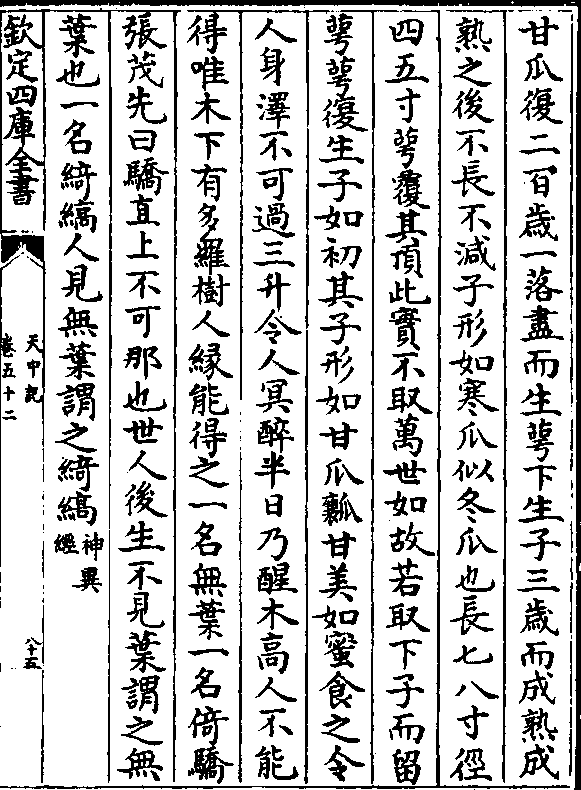 甘瓜復二百歲一落盡而生蕚下生子三歲而成熟成
熟之後不長不減子形如寒瓜似冬瓜也長七八寸徑
四五寸蕚覆其頂此實不取萬世如故若取下子而留
蕚蕚復生子如初其子形如甘瓜瓤甘美如蜜食之令
人身澤不可過三升令人冥醉半日乃醒木高人不能
得唯木下有多羅樹人緣能得之一名無葉一名倚驕
張茂先曰驕直上不可那也世人後生不見葉謂之無
葉也一名綺縞人見無葉謂之綺縞神異經
欽定四庫全書
天中記
卷五十二
八十五